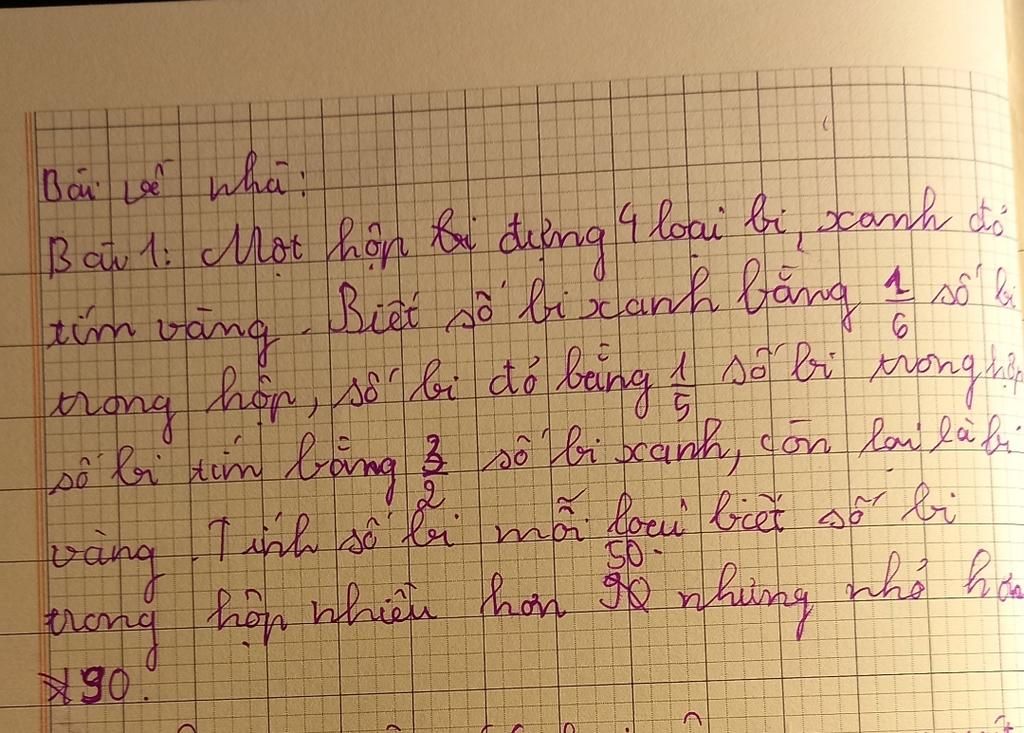 Bài về nhà:
Bài 1: Một hộp bi đựng 4 loại bi, xanh đỏ
tím vàng. Biết số bi xanh bằng 1/6 số bi
trong hộp, số bi đỏ bằng 1/5 số bi trong hộp
số bi tím bằng 3/2 số bi xanh, còn lại là bi
vàng. Tính số bi mỗi loại biết số bi
50.
trong hộp nhiều hơn 90 nhưng nhỏ hơn
90.